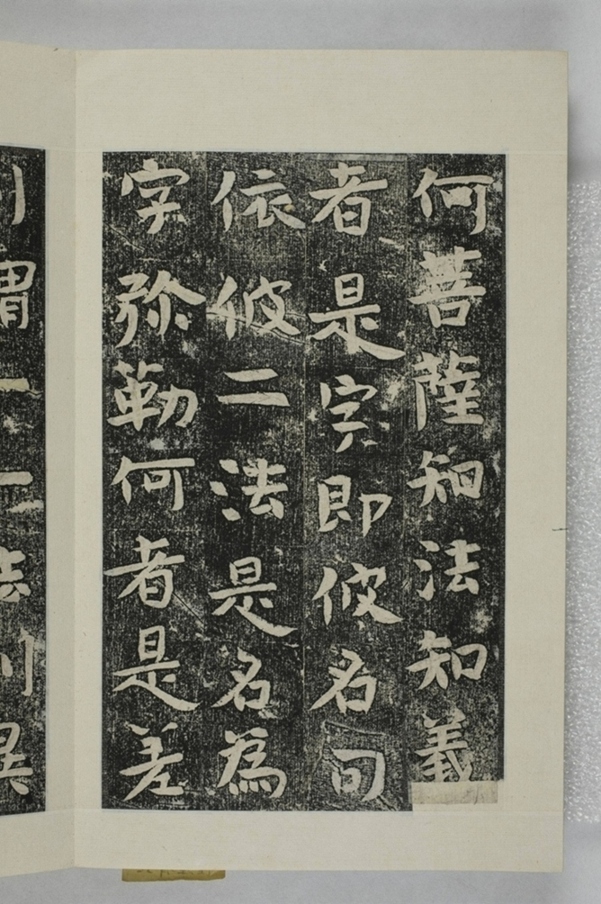 何菩薩知法知義
者是字即彼名句
依彼二法是名為
字弥勒何者是差
謂一一法別異